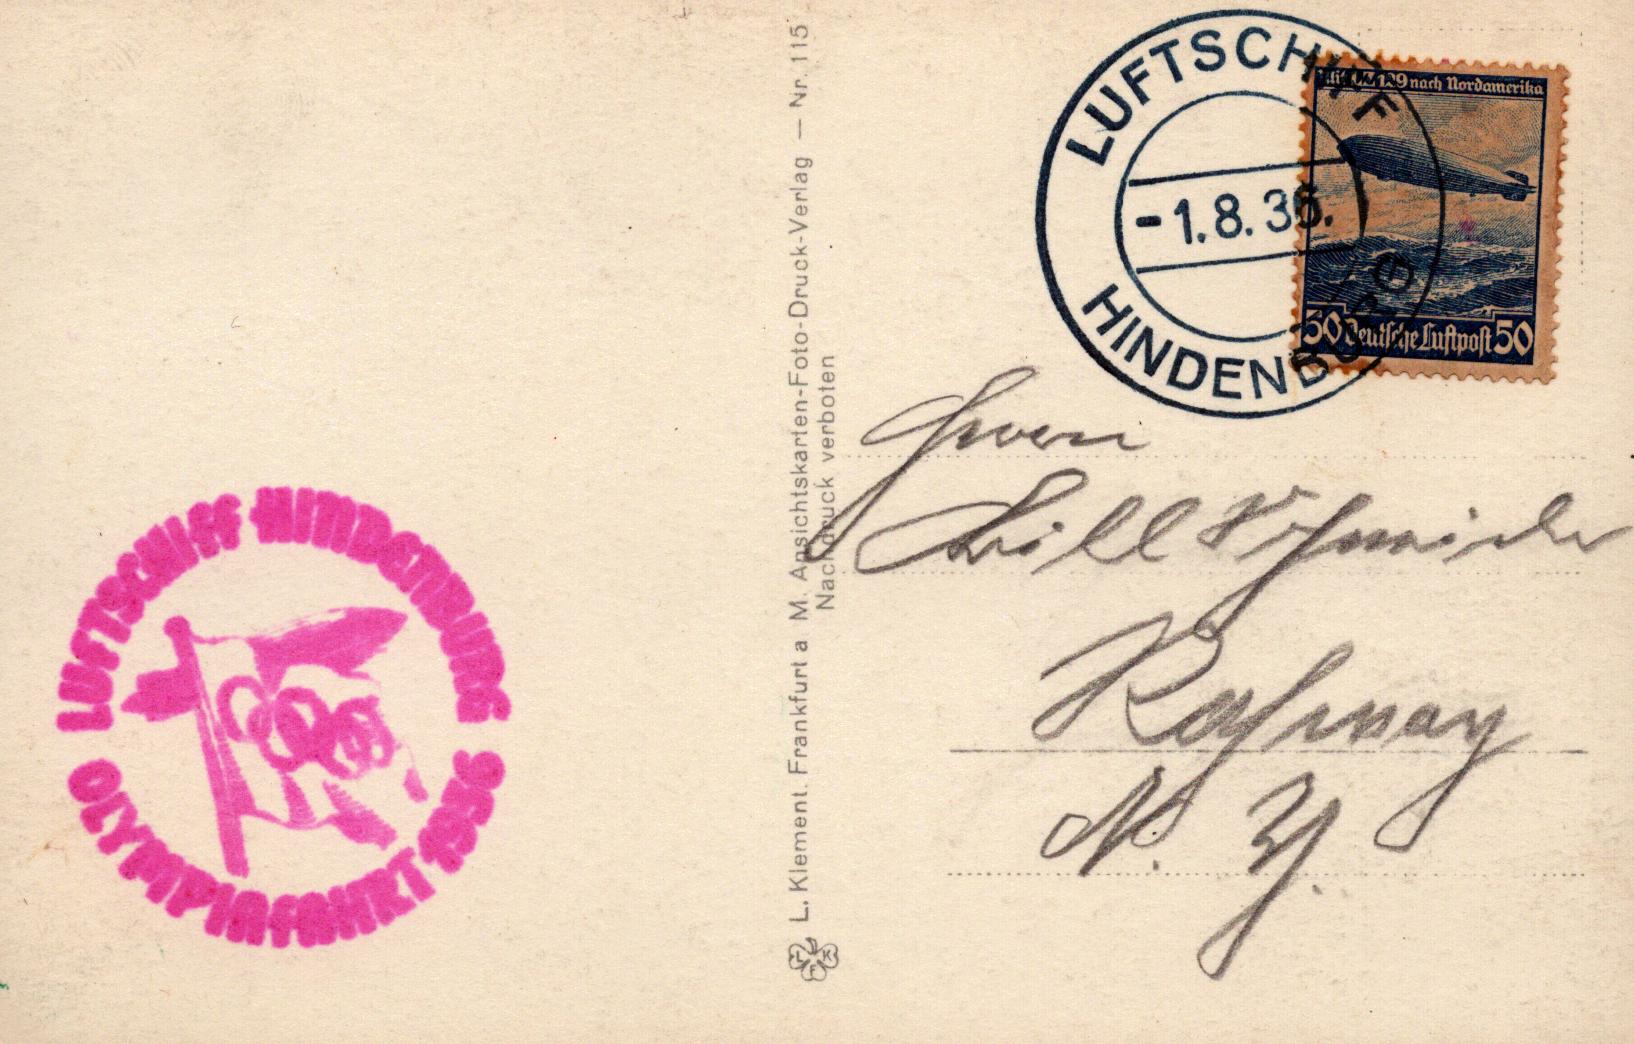 LUFTSCHIFF
-1.8.36.
HINDENBURG
Mit LZ 129 nach Nordamerika
50 Deutsche Luftpost 50
Herrn
Will Schneider
Rahway
N. Y.
L. Klement. Frankfurt a M. Ansichtskarten-Foto-Druck-Verlag — Nr. 115
Nachdruck verboten
L F K
LUFTSCHIFF HINDENBURG
OLYMPIAFAHRT 1936